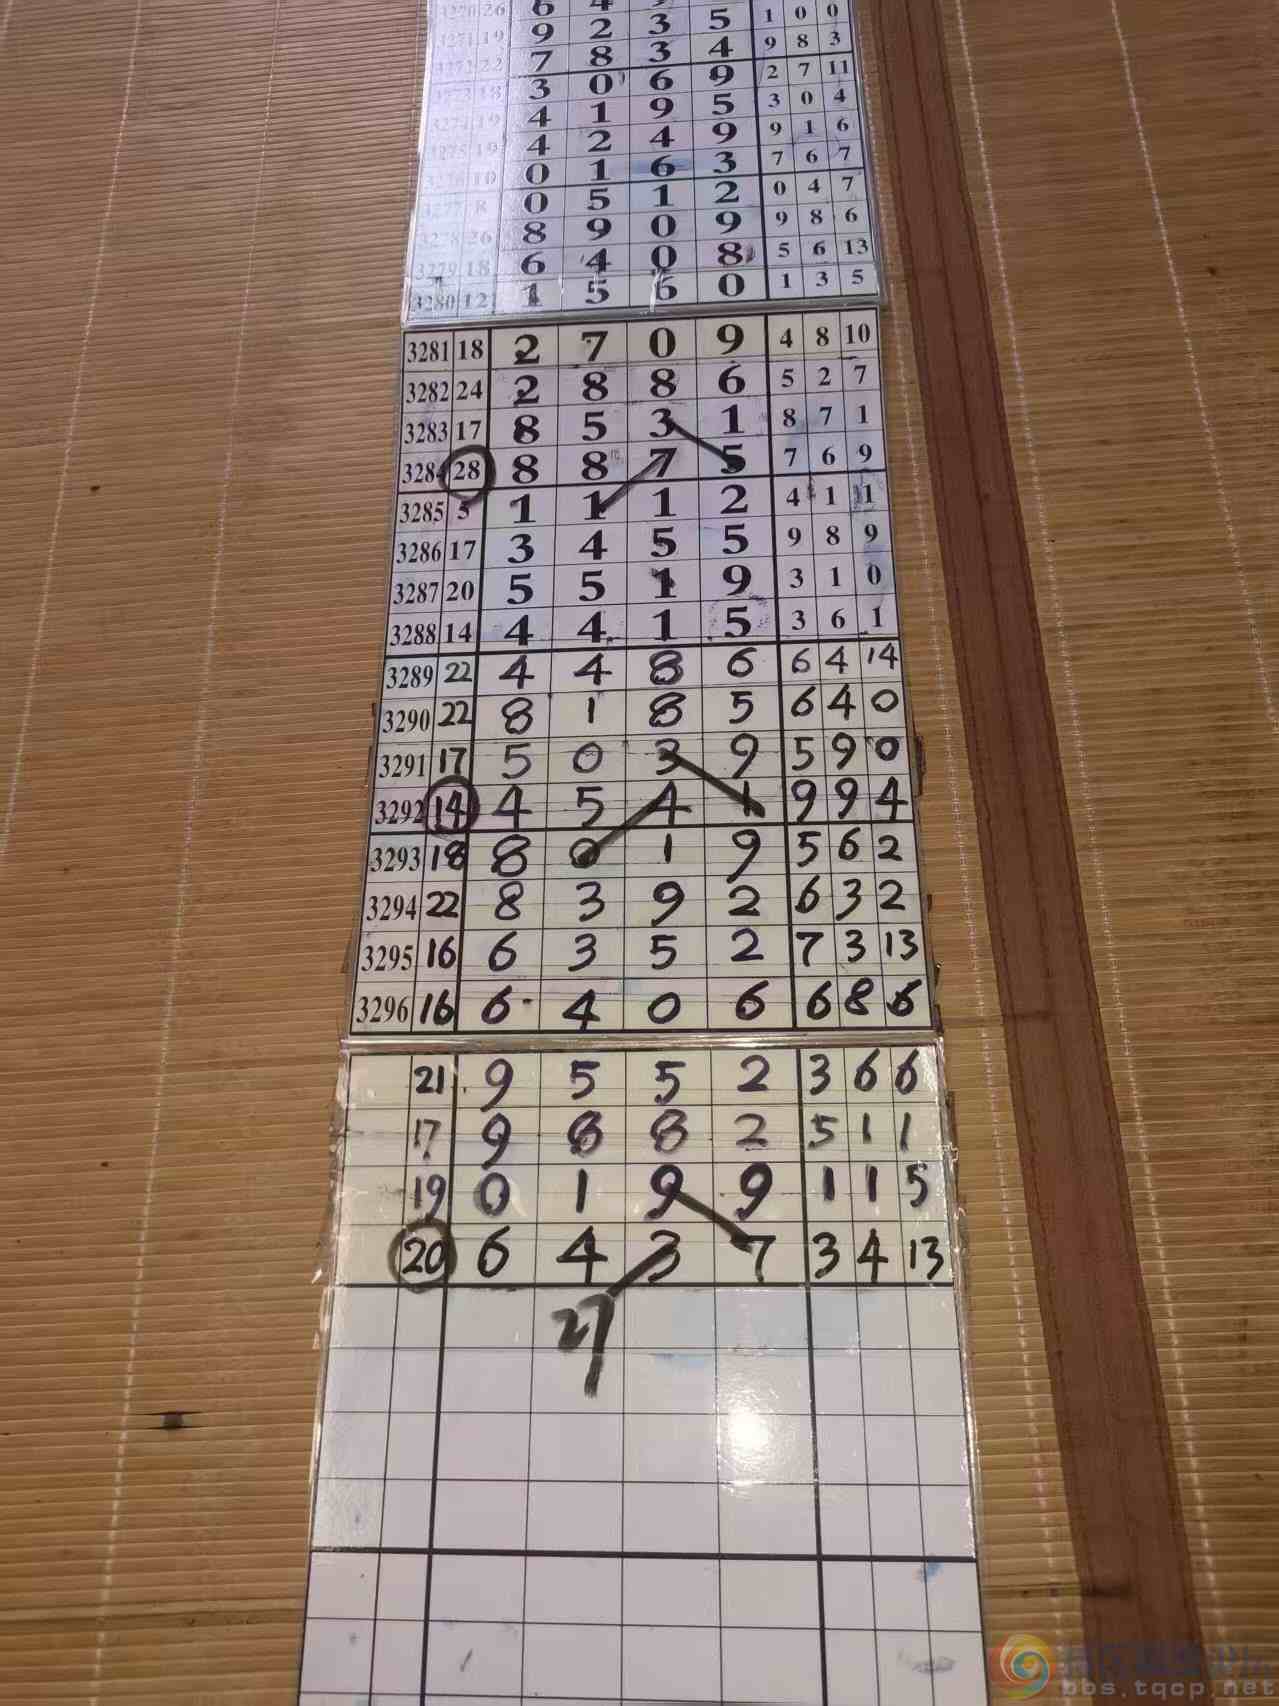 3270 26 6 4 1 0 0
3271 19 9 2 3 5 9 8 3
3272 22 7 8 3 4 2 7 11
3273 18 3 0 6 9 3 0 4
3274 19 4 1 9 5 9 1 6
3275 19 4 2 4 9 7 6 7
3276 10 0 1 6 3 0 4 7
3277 8 0 5 1 2 9 8 6
3278 26 8 9 0 9 5 6 13
3279 18 6 4 0 8 1 3 5
3280 12 1 5 6 0
3281 18 2 7 0 9 4 8 10
3282 24 2 8 8 6 5 2 7
3283 17 8 5 3 1 8 7 1
3284 28 8 8 7 5 7 6 9
3285 5 1 1 1 2 4 1 11
3286 17 3 4 5 5 9 8 9
3287 20 5 5 1 9 3 1 0
3288 14 4 4 1 5 3 6 1
3289 22 4 4 8 6 6 4 14
3290 22 8 1 8 5 6 4 0
3291 17 5 0 3 9 5 9 0
3292 14 4 5 4 1 9 9 4
3293 18 8 0 1 9 5 6 2
3294 22 8 3 9 2 6 3 2
3295 16 6 3 5 2 7 3 13
3296 16 6 4 0 6 6 8 6
21 9 5 5 2 3 6 6
17 9 8 8 2 5 1 1
19 0 1 9 9 1 1 5
20 6 4 3 7 3 4 13
27
bbs.tqcp.net